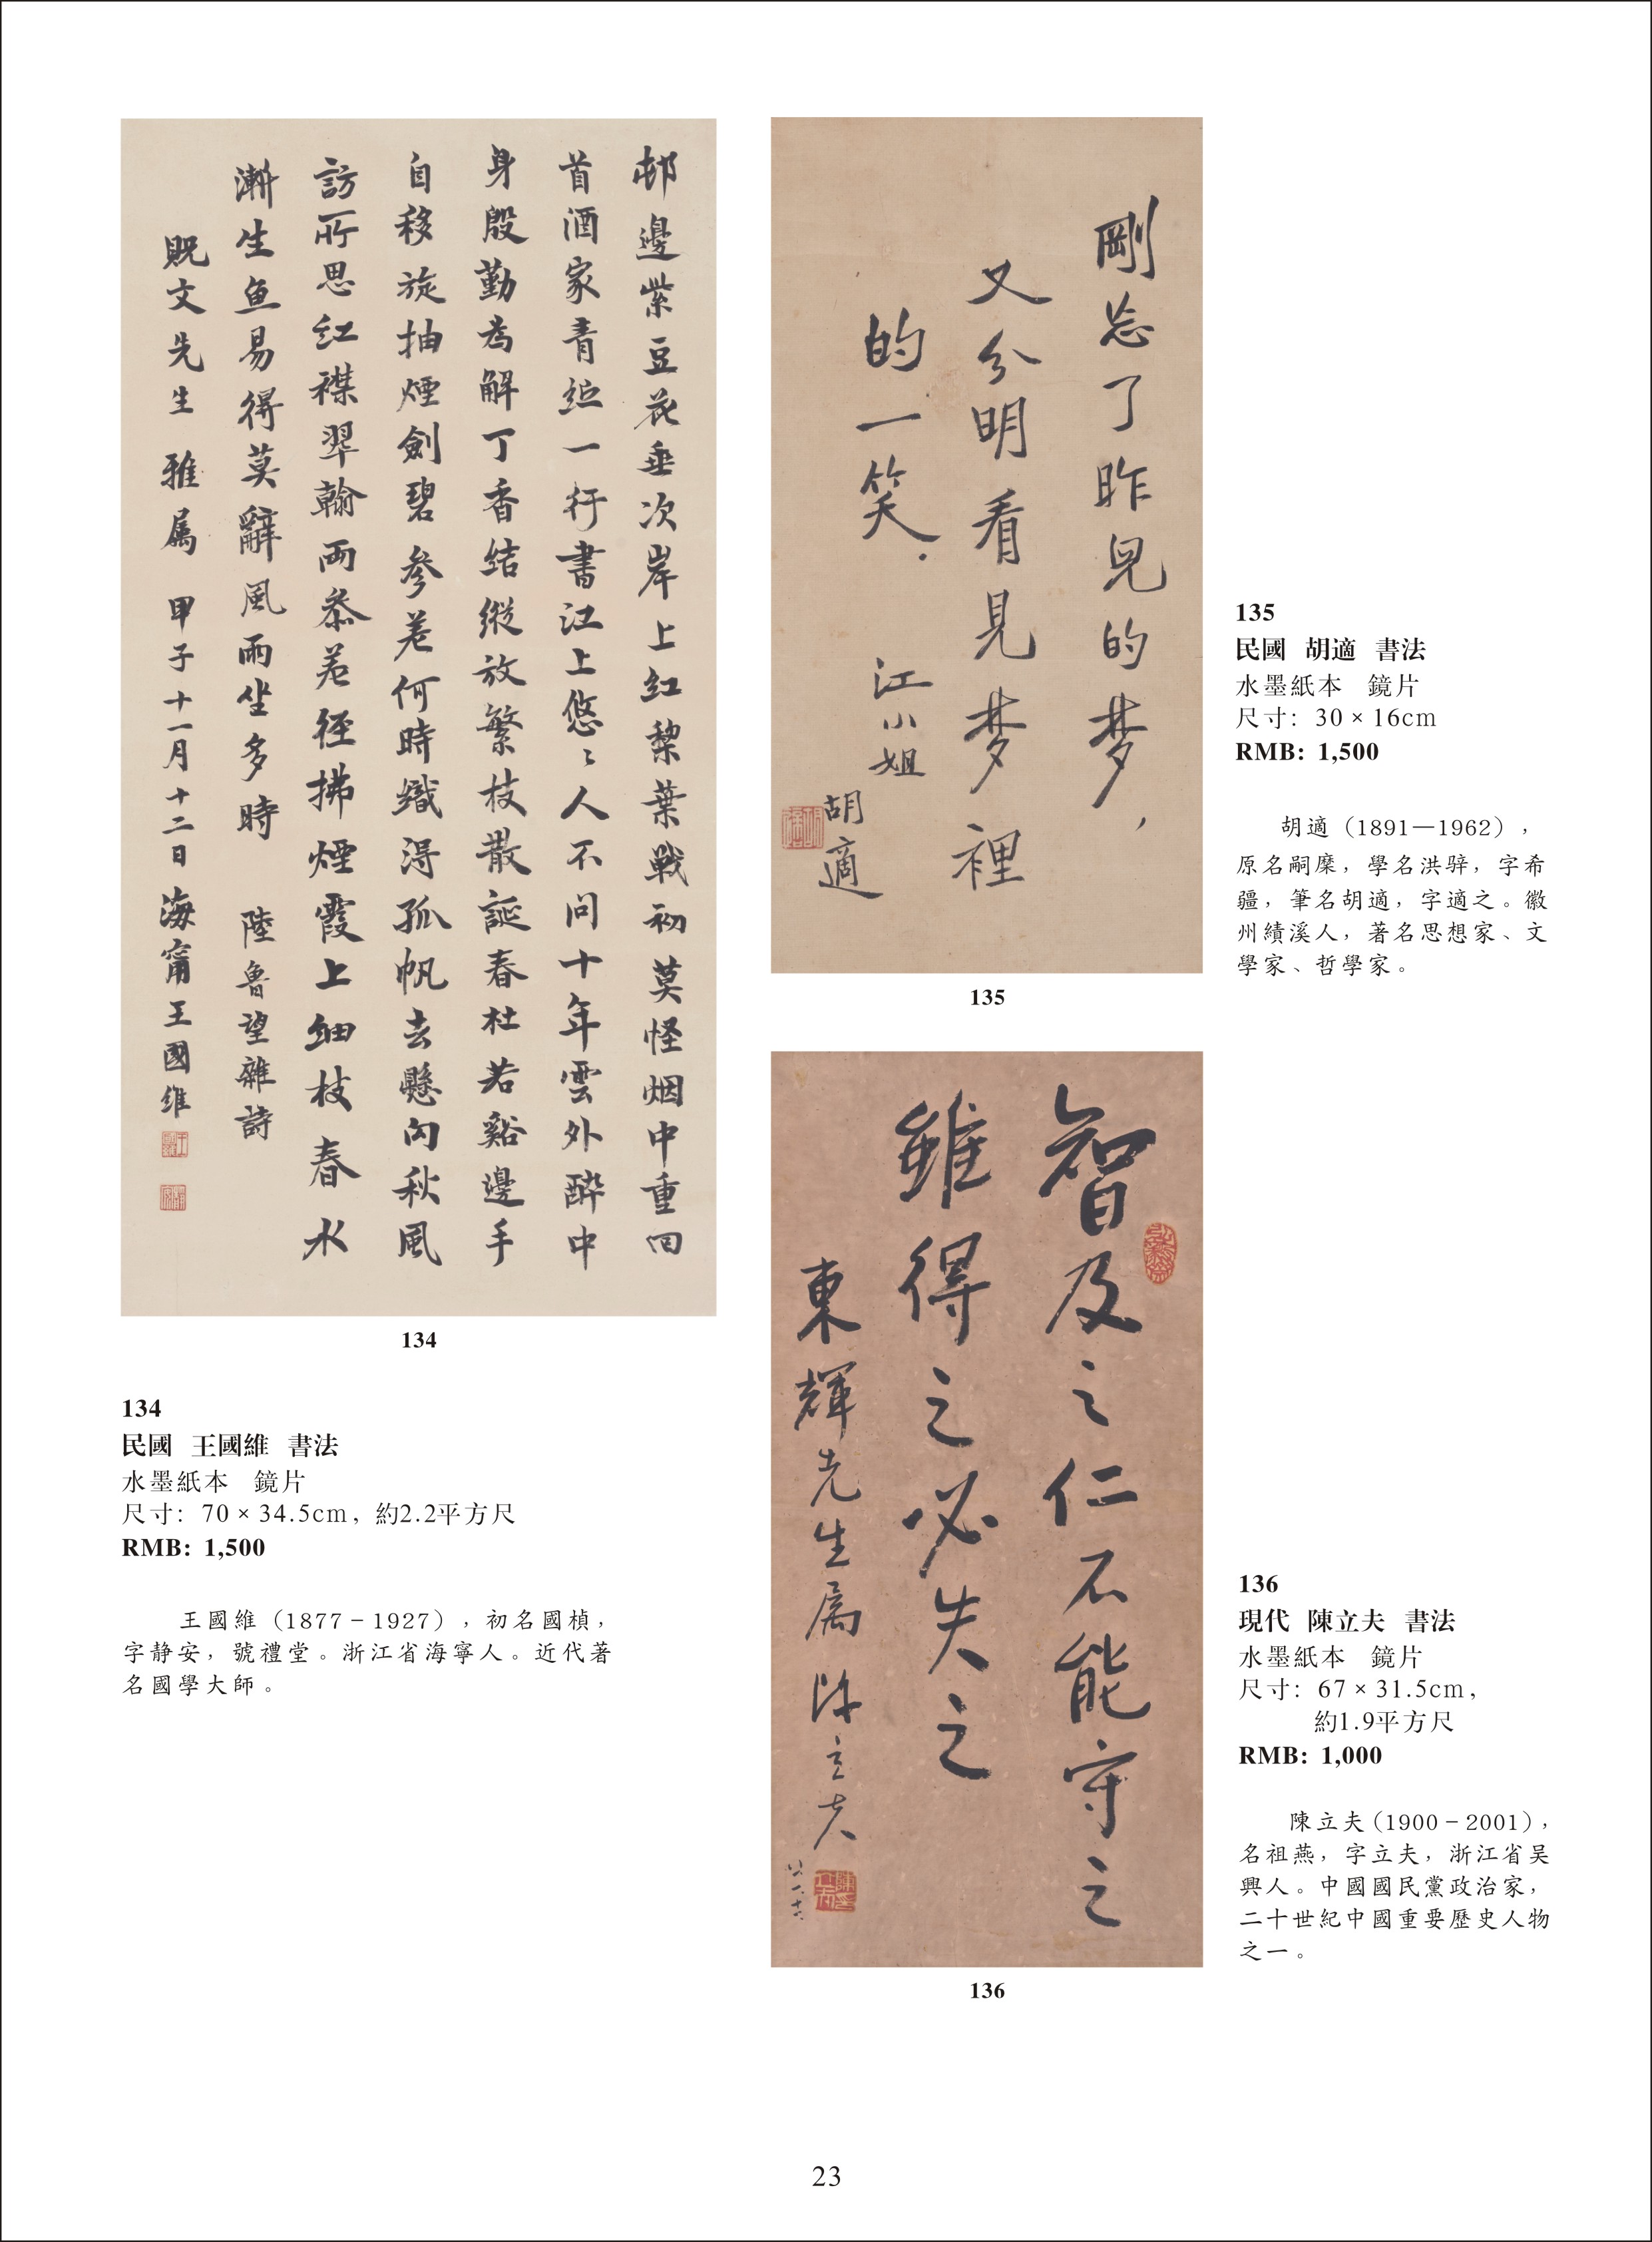 邨邊紫豆花垂次岸上紅棃葉戰初莫怪烟中重回
首酒家青紵一行書江上悠〻人不問十年雲外醉中
身殷勤為解丁香結縱放繁枝散誕春杜若谿邊手
自移旋抽煙劍碧參差何時織得孤帆去懸向秋風
訪所思紅襟翠翰兩參差徑拂煙霞上細枝春水
漸生魚易得莫辭風雨坐多時 陸魯望雜詩
貺文先生雅属 甲子十一月十二日海甯王國維
134
134
民國 王國維 書法
水墨紙本 鏡片
尺寸：70×34.5cm，約2.2平方尺
RMB: 1,500
王國維（1877－1927），初名國楨，
字静安，號禮堂。浙江省海寧人。近代著
名國學大師。
剛忘了昨兒的梦，
又分明看見梦裡
的一笑．
江小姐
胡適
135
135
民國 胡適 書法
水墨紙本 鏡片
尺寸：30×16cm
RMB: 1,500
胡適（1891—1962），
原名嗣穈，學名洪騂，字希
疆，筆名胡適，字適之。徽
州績溪人，著名思想家、文
學家、哲學家。
智及之仁不能守之
雖得之必失之
東輝先生属 陳立夫
136
136
現代 陳立夫 書法
水墨紙本 鏡片
尺寸：67×31.5cm，
約1.9平方尺
RMB: 1,000
陳立夫（1900－2001），
名祖燕，字立夫，浙江省吴
興人。中國國民黨政治家，
二十世紀中國重要歷史人物
之一。
23